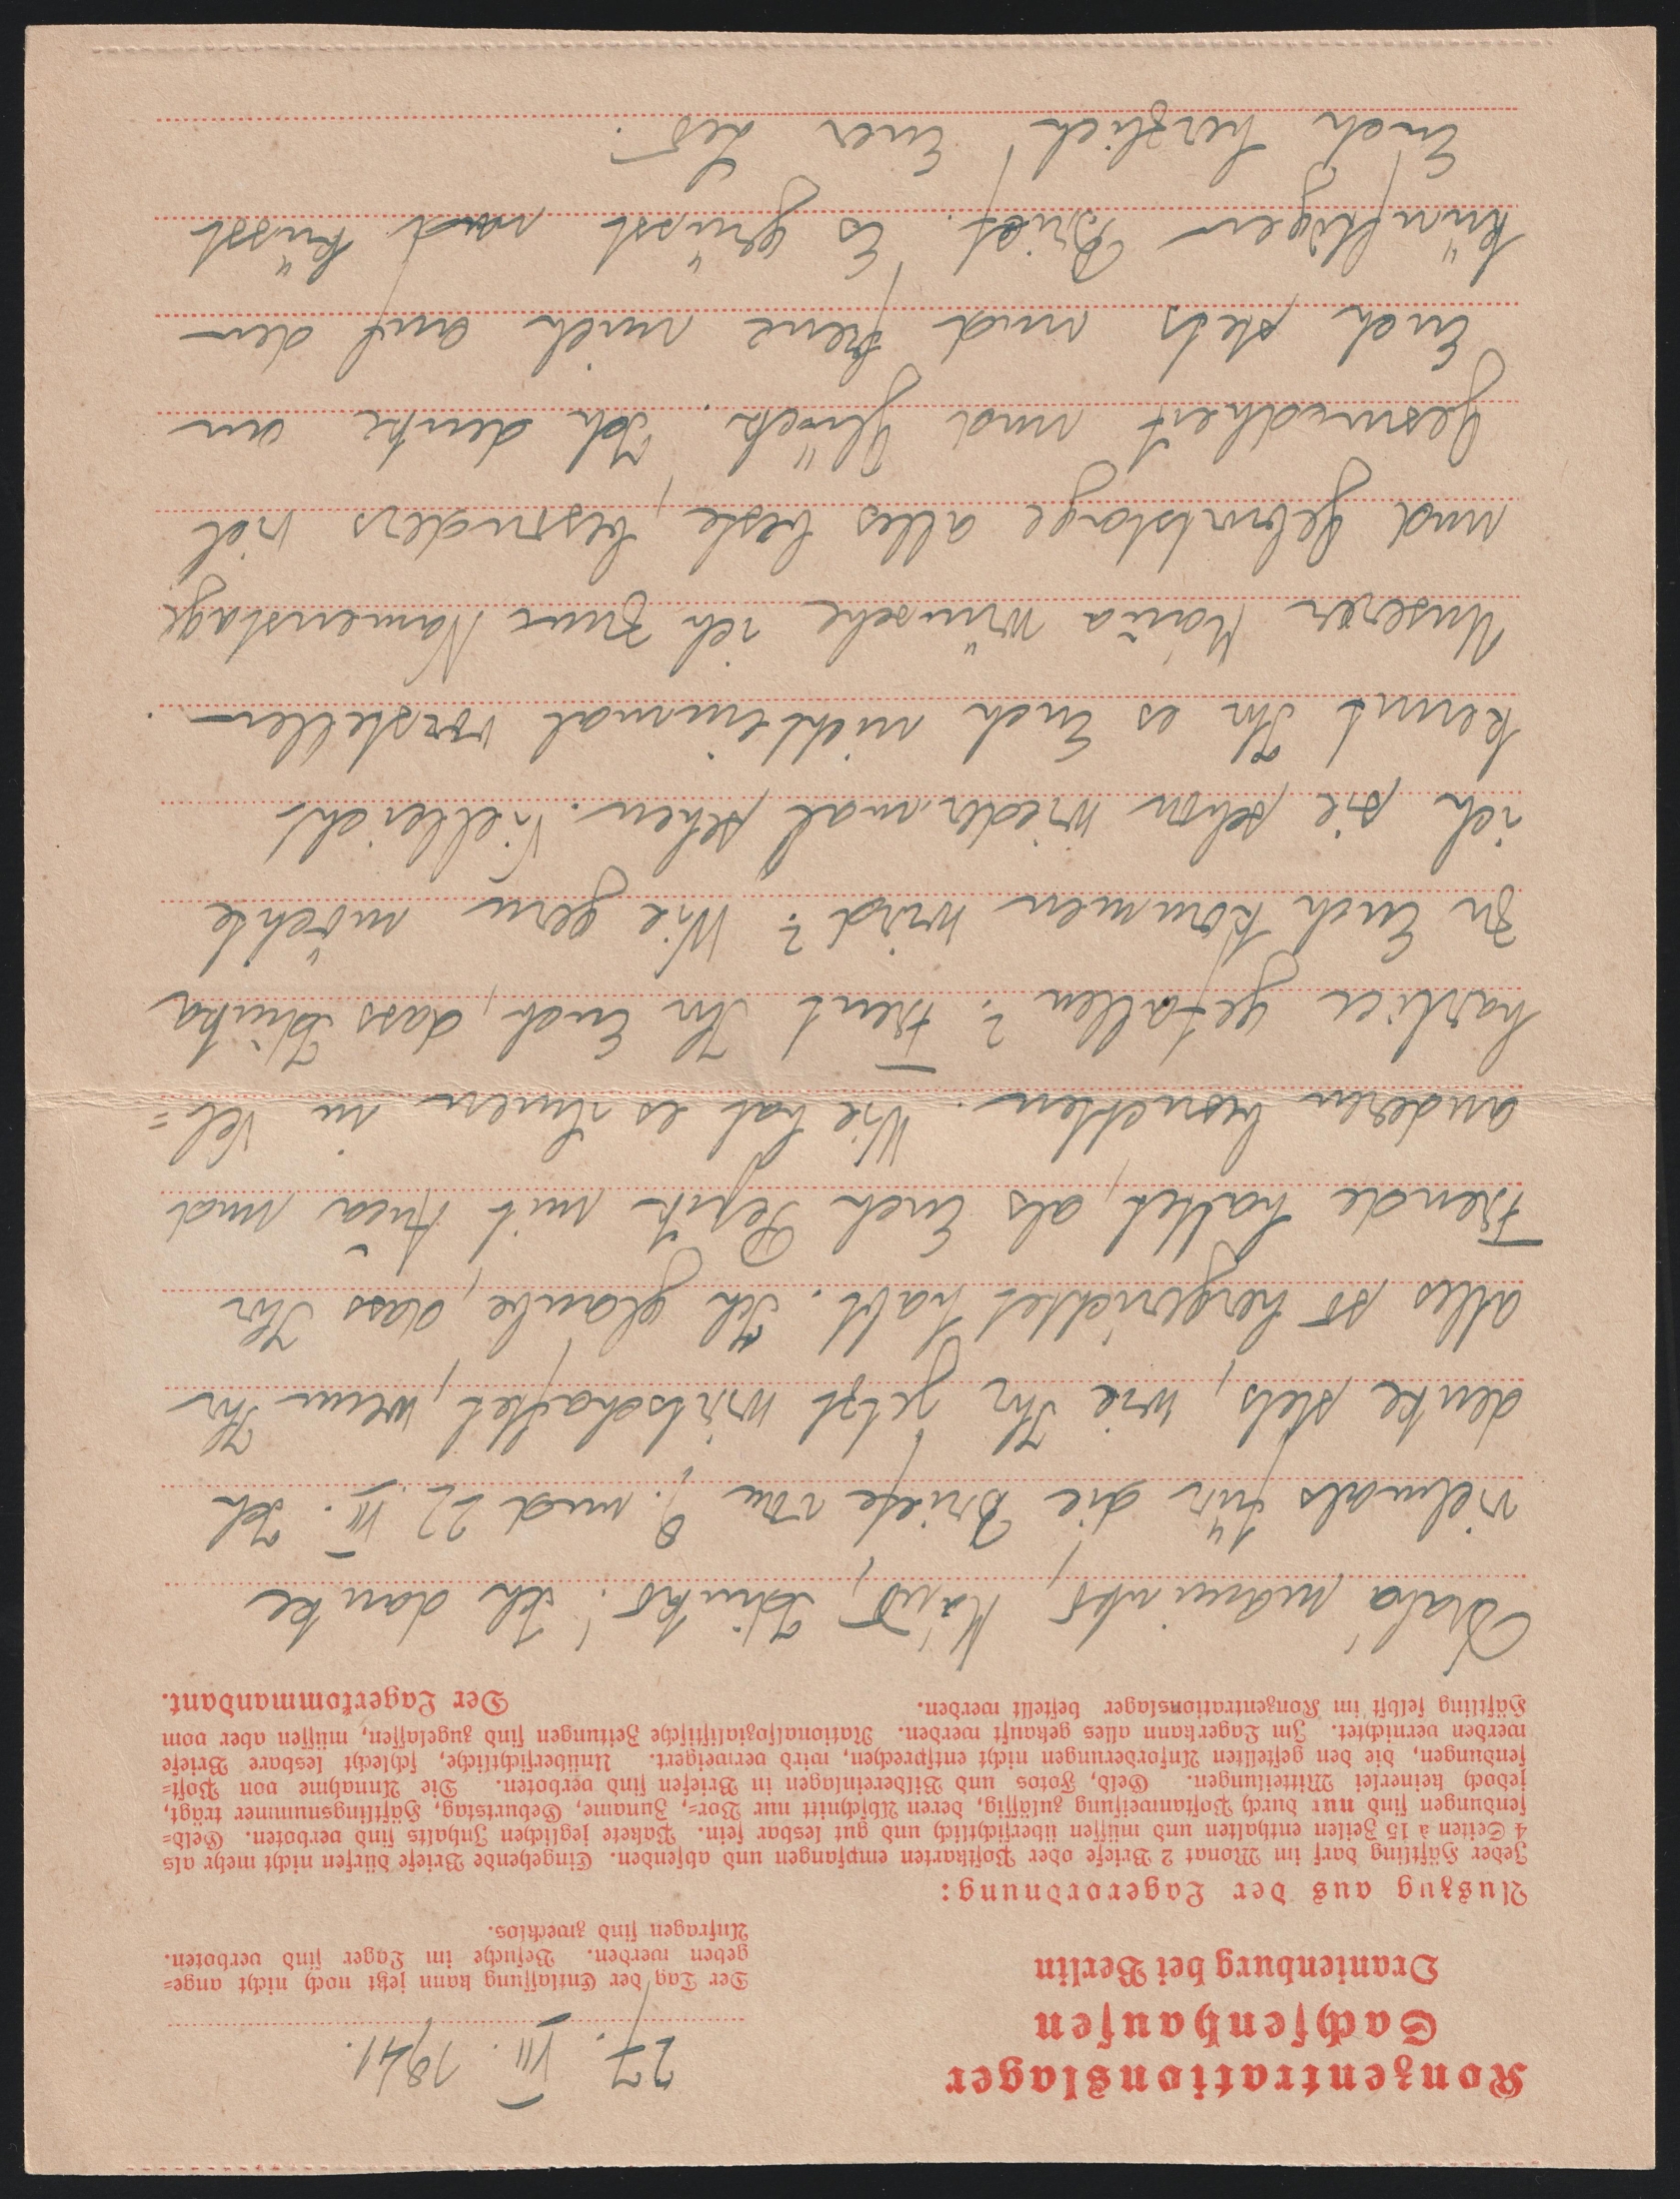 Konzentrationslager
Sachsenhausen
Oranienburg bei Berlin
27. VII. 1941.
Der Tag der Entlassung kann jetzt noch nicht ange=
geben werden. Besuche im Lager sind verboten.
Anfragen sind zwecklos.
Auszug aus der Lagerordnung:
Jeder Häftling darf im Monat 2 Briefe oder Postkarten empfangen und absenden. Eingehende Briefe dürfen nicht mehr als
4 Seiten à 15 Zeilen enthalten und müssen übersichtlich und gut lesbar sein. Pakete jeglichen Inhalts sind verboten. Geld=
sendungen sind nur durch Postanweisung zulässig, deren Abschnitt nur Vor=, Zuname, Geburtstag, Häftlingsnummer trägt,
jedoch keinerlei Mitteilungen. Geld, Fotos und Bildereinlagen in Briefen sind verboten. Die Annahme von Post=
sendungen, die den gestellten Anforderungen nicht entsprechen, wird verweigert. Unübersichtliche, schlecht lesbare Briefe
werden vernichtet. Im Lager kann alles gekauft werden. Nationalsozialistische Zeitungen sind zugelassen, müssen aber vom
Häftling selbst im Konzentrationslager bestellt werden.
Der Lagerkommandant.
Drahá maminko, Ich danke
vielmals für die Briefe vom 9. und 22. VII. Ich
denke stets, wie Ihr jetzt wirtschaftet, wenn Ihr
alles so hergerichtet habt. Ich glaube, dass Ihr
Freude hattet, als Euch Pepik mit und
anderen besuchten. Wie hat es ihnen in Vel=
hartice gefallen? Freut Ihr Euch, dass
zu Euch kommen wird? Wie gern möchte
ich sie schon wieder mal sehen. Vielleicht
kennt Ihr es Euch nicht einmal vorstellen.
Unserer Máňa wünsche ich zum Namenstage
und Geburtstage alles beste, besonders viel
Gesundheit und Glück. Ich denke an
Euch stets und freue mich auf den
künftigen Brief. Es grüsst und küsst
Euch herzlich Euer